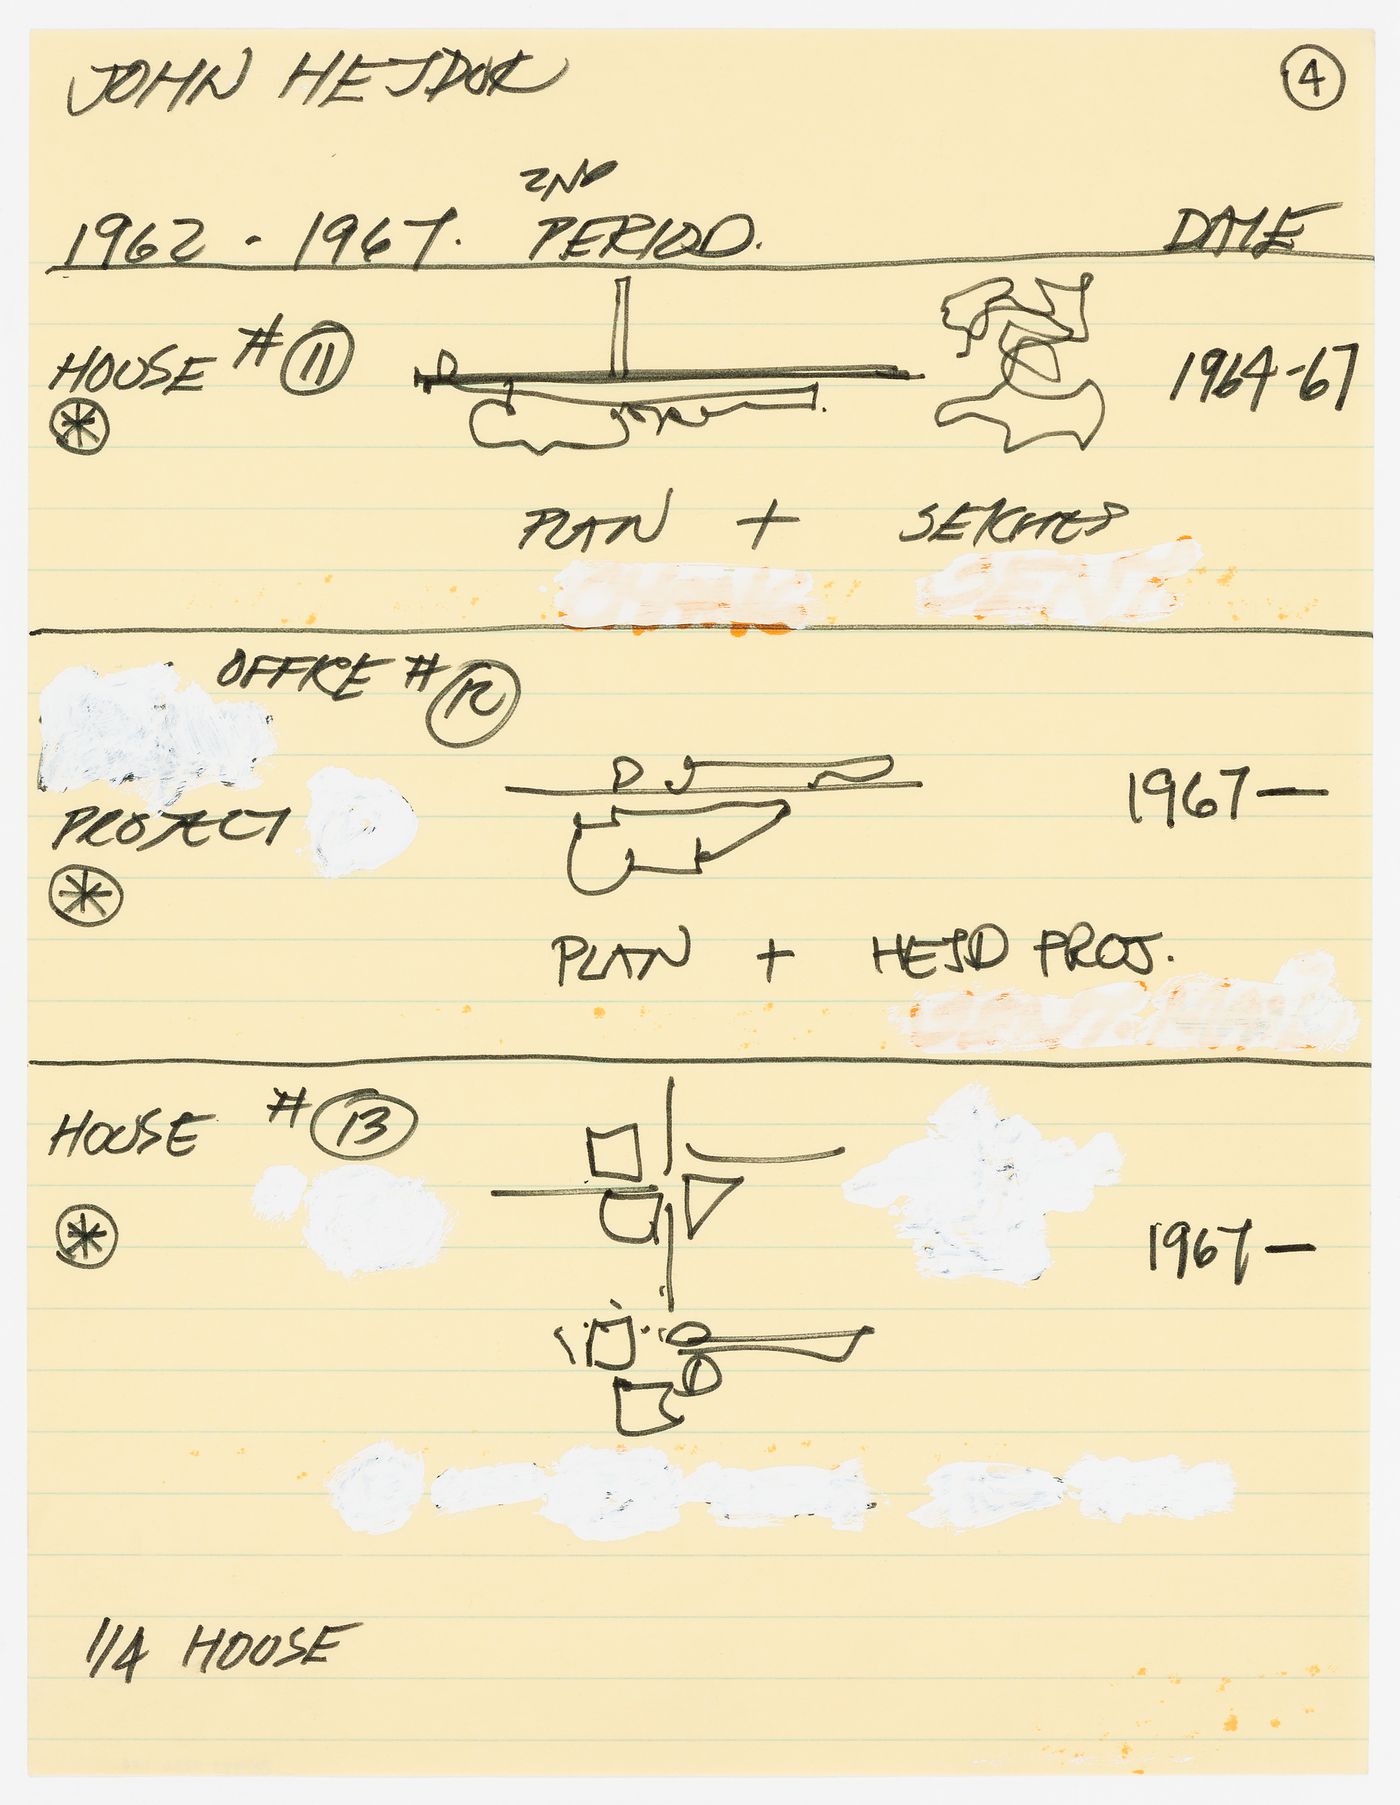 JOHN HEJDUK
4
2ND
1962 - 1967. PERIOD. DATE
HOUSE # 11
1964-67
PLAN + SEKCHES
OFFICE # 12
PROJECT
1967—
PLAN + HEJD PROJ.
HOUSE # 13
1967—
1/4 HOUSE